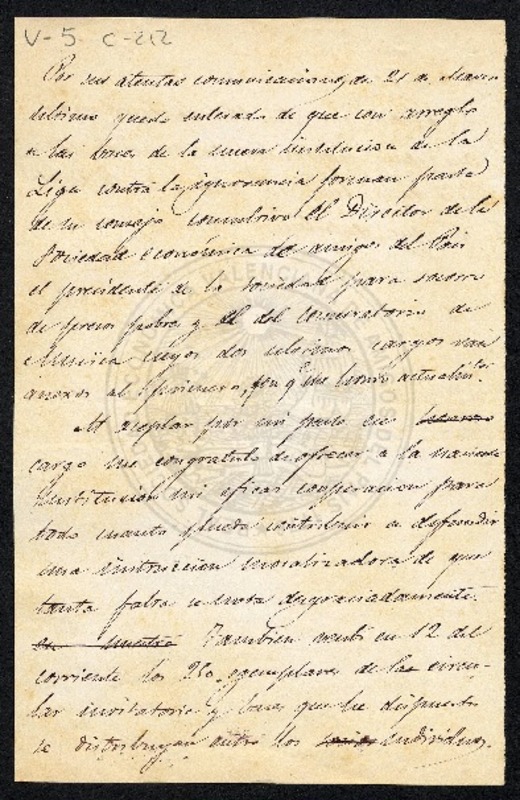 V-5 C-212
Por sus atentas comunicaciones de 21 de Marzo
ultimo quedo enterado de que con arreglo
a las bases de la nueva institucion de la
Liga contra la ignorancia forman parte
de su consejo consultivo el Director de la
Sociedad economica de amigos del Pais
el presidente de la sociedad para socorro
de presos pobres y el del conservatorio de
Musica cuyos dos ultimos cargos van
anexos al primero, con q. me honro actualmte.
Al aceptar por mi parte ese
cargo me congratulo de ofrecer a la naciente
Institucion mi eficaz cooperacion para
todo cuanto pueda contribuir a difundir
una instruccion moralizadora de que
tanta falta se nota desgraciadamente.
Tambien recibi en 12 del
corriente los 250 ejemplares de la circu-
lar invitatoria y bases que he dispuesto
se distribuyan entre los individuos.